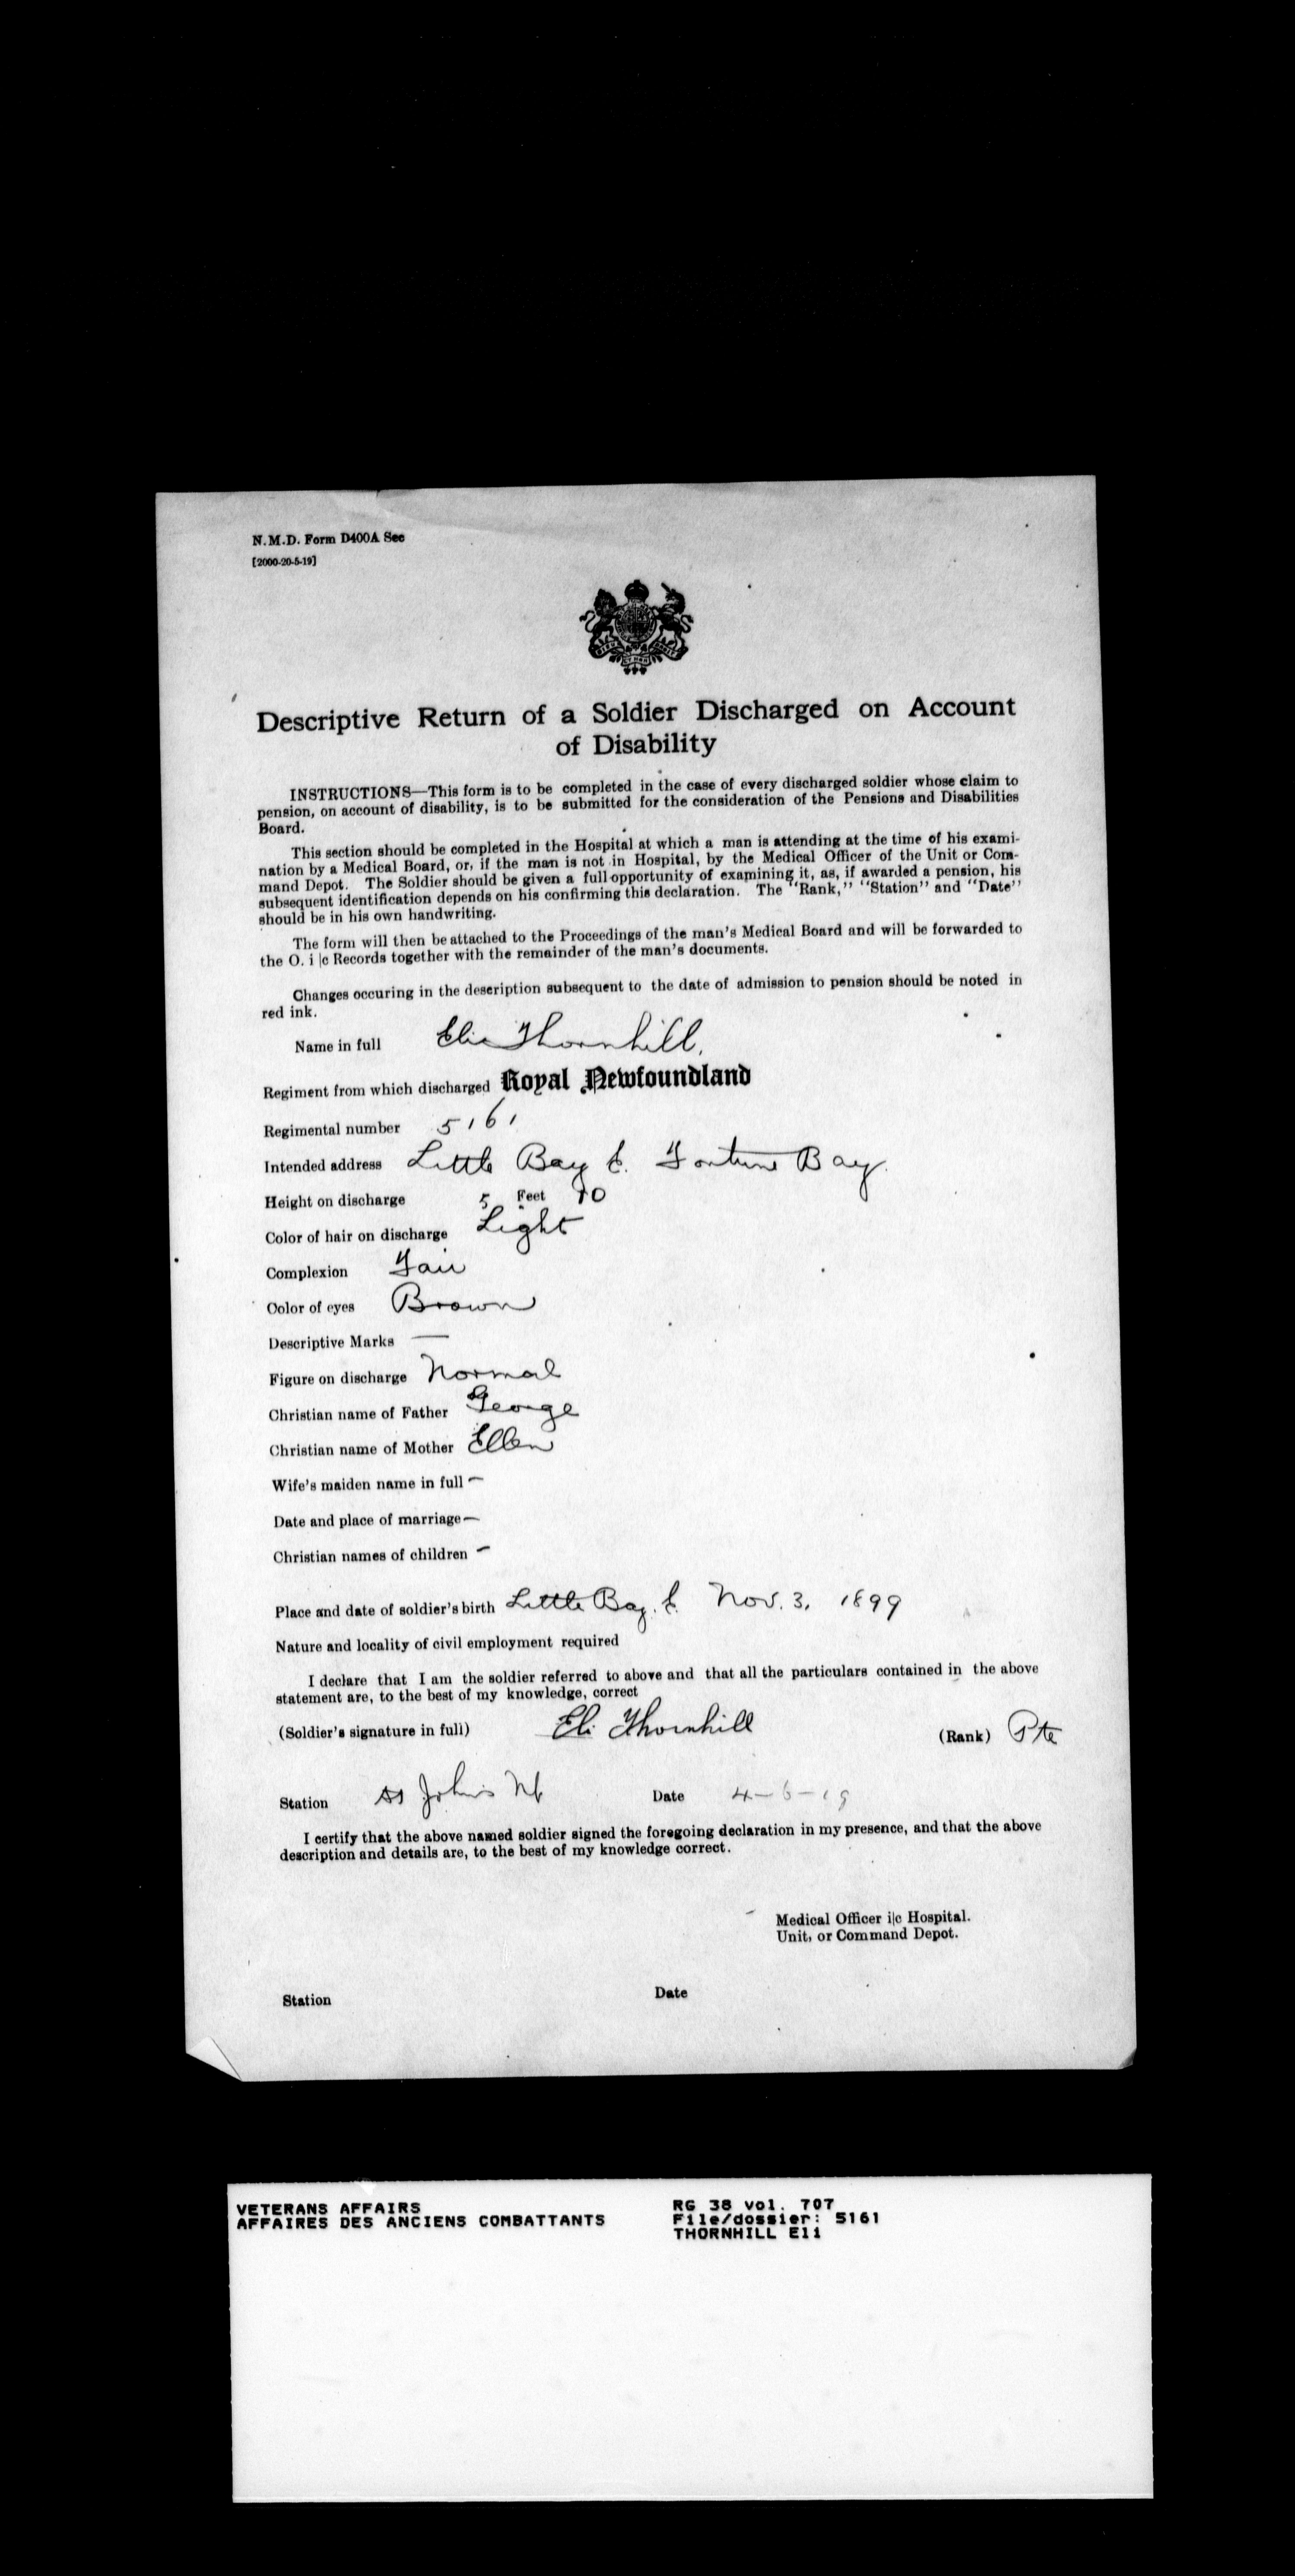 N.M.D. Form D400A See
[2000-20-5-19]
Descriptive Return of a Soldier Discharged on Account
of Disability
INSTRUCTIONS—This form is to be completed in the case of every discharged soldier whose claim to
pension, on account of disability, is to be submitted for the consideration of the Pensions and Disabilities
Board.
This section should be completed in the Hospital at which a man is attending at the time of his exami-
nation by a Medical Board, or, if the man is not in Hospital, by the Medical Officer of the Unit or Com-
mand Depot. The Soldier should be given a full opportunity of examining it, as, if awarded a pension, his
subsequent identification depends on his confirming this declaration. The "Rank," "Station" and "Date"
should be in his own handwriting.
The form will then be attached to the Proceedings of the man's Medical Board and will be forwarded to
the O. i|c Records together with the remainder of the man's documents.
Changes occuring in the description subsequent to the date of admission to pension should be noted in
red ink.
Name in full Eli Thornhill.
Regiment from which discharged Royal Newfoundland
Regimental number 5161
Intended address Little Bay E. Fortune Bay.
Height on discharge 5 Feet 10
Color of hair on discharge Light
Complexion Fair
Color of eyes Brown
Descriptive Marks —
Figure on discharge Normal
Christian name of Father George
Christian name of Mother Ellen
Wife's maiden name in full —
Date and place of marriage —
Christian names of children —
Place and date of soldier's birth Little Bay. E. Nov. 3, 1899
Nature and locality of civil employment required
I declare that I am the soldier referred to above and that all the particulars contained in the above
statement are, to the best of my knowledge, correct
(Soldier's signature in full) Eli Thornhill (Rank) Pte
Station St John's Nf Date 4-6-19
I certify that the above named soldier signed the foregoing declaration in my presence, and that the above
description and details are, to the best of my knowledge correct.
Medical Officer i|c Hospital.
Unit, or Command Depot.
Station Date
VETERANS AFFAIRS RG 38 vol. 707
AFFAIRES DES ANCIENS COMBATTANTS File/dossier: 5161
THORNHILL Eli